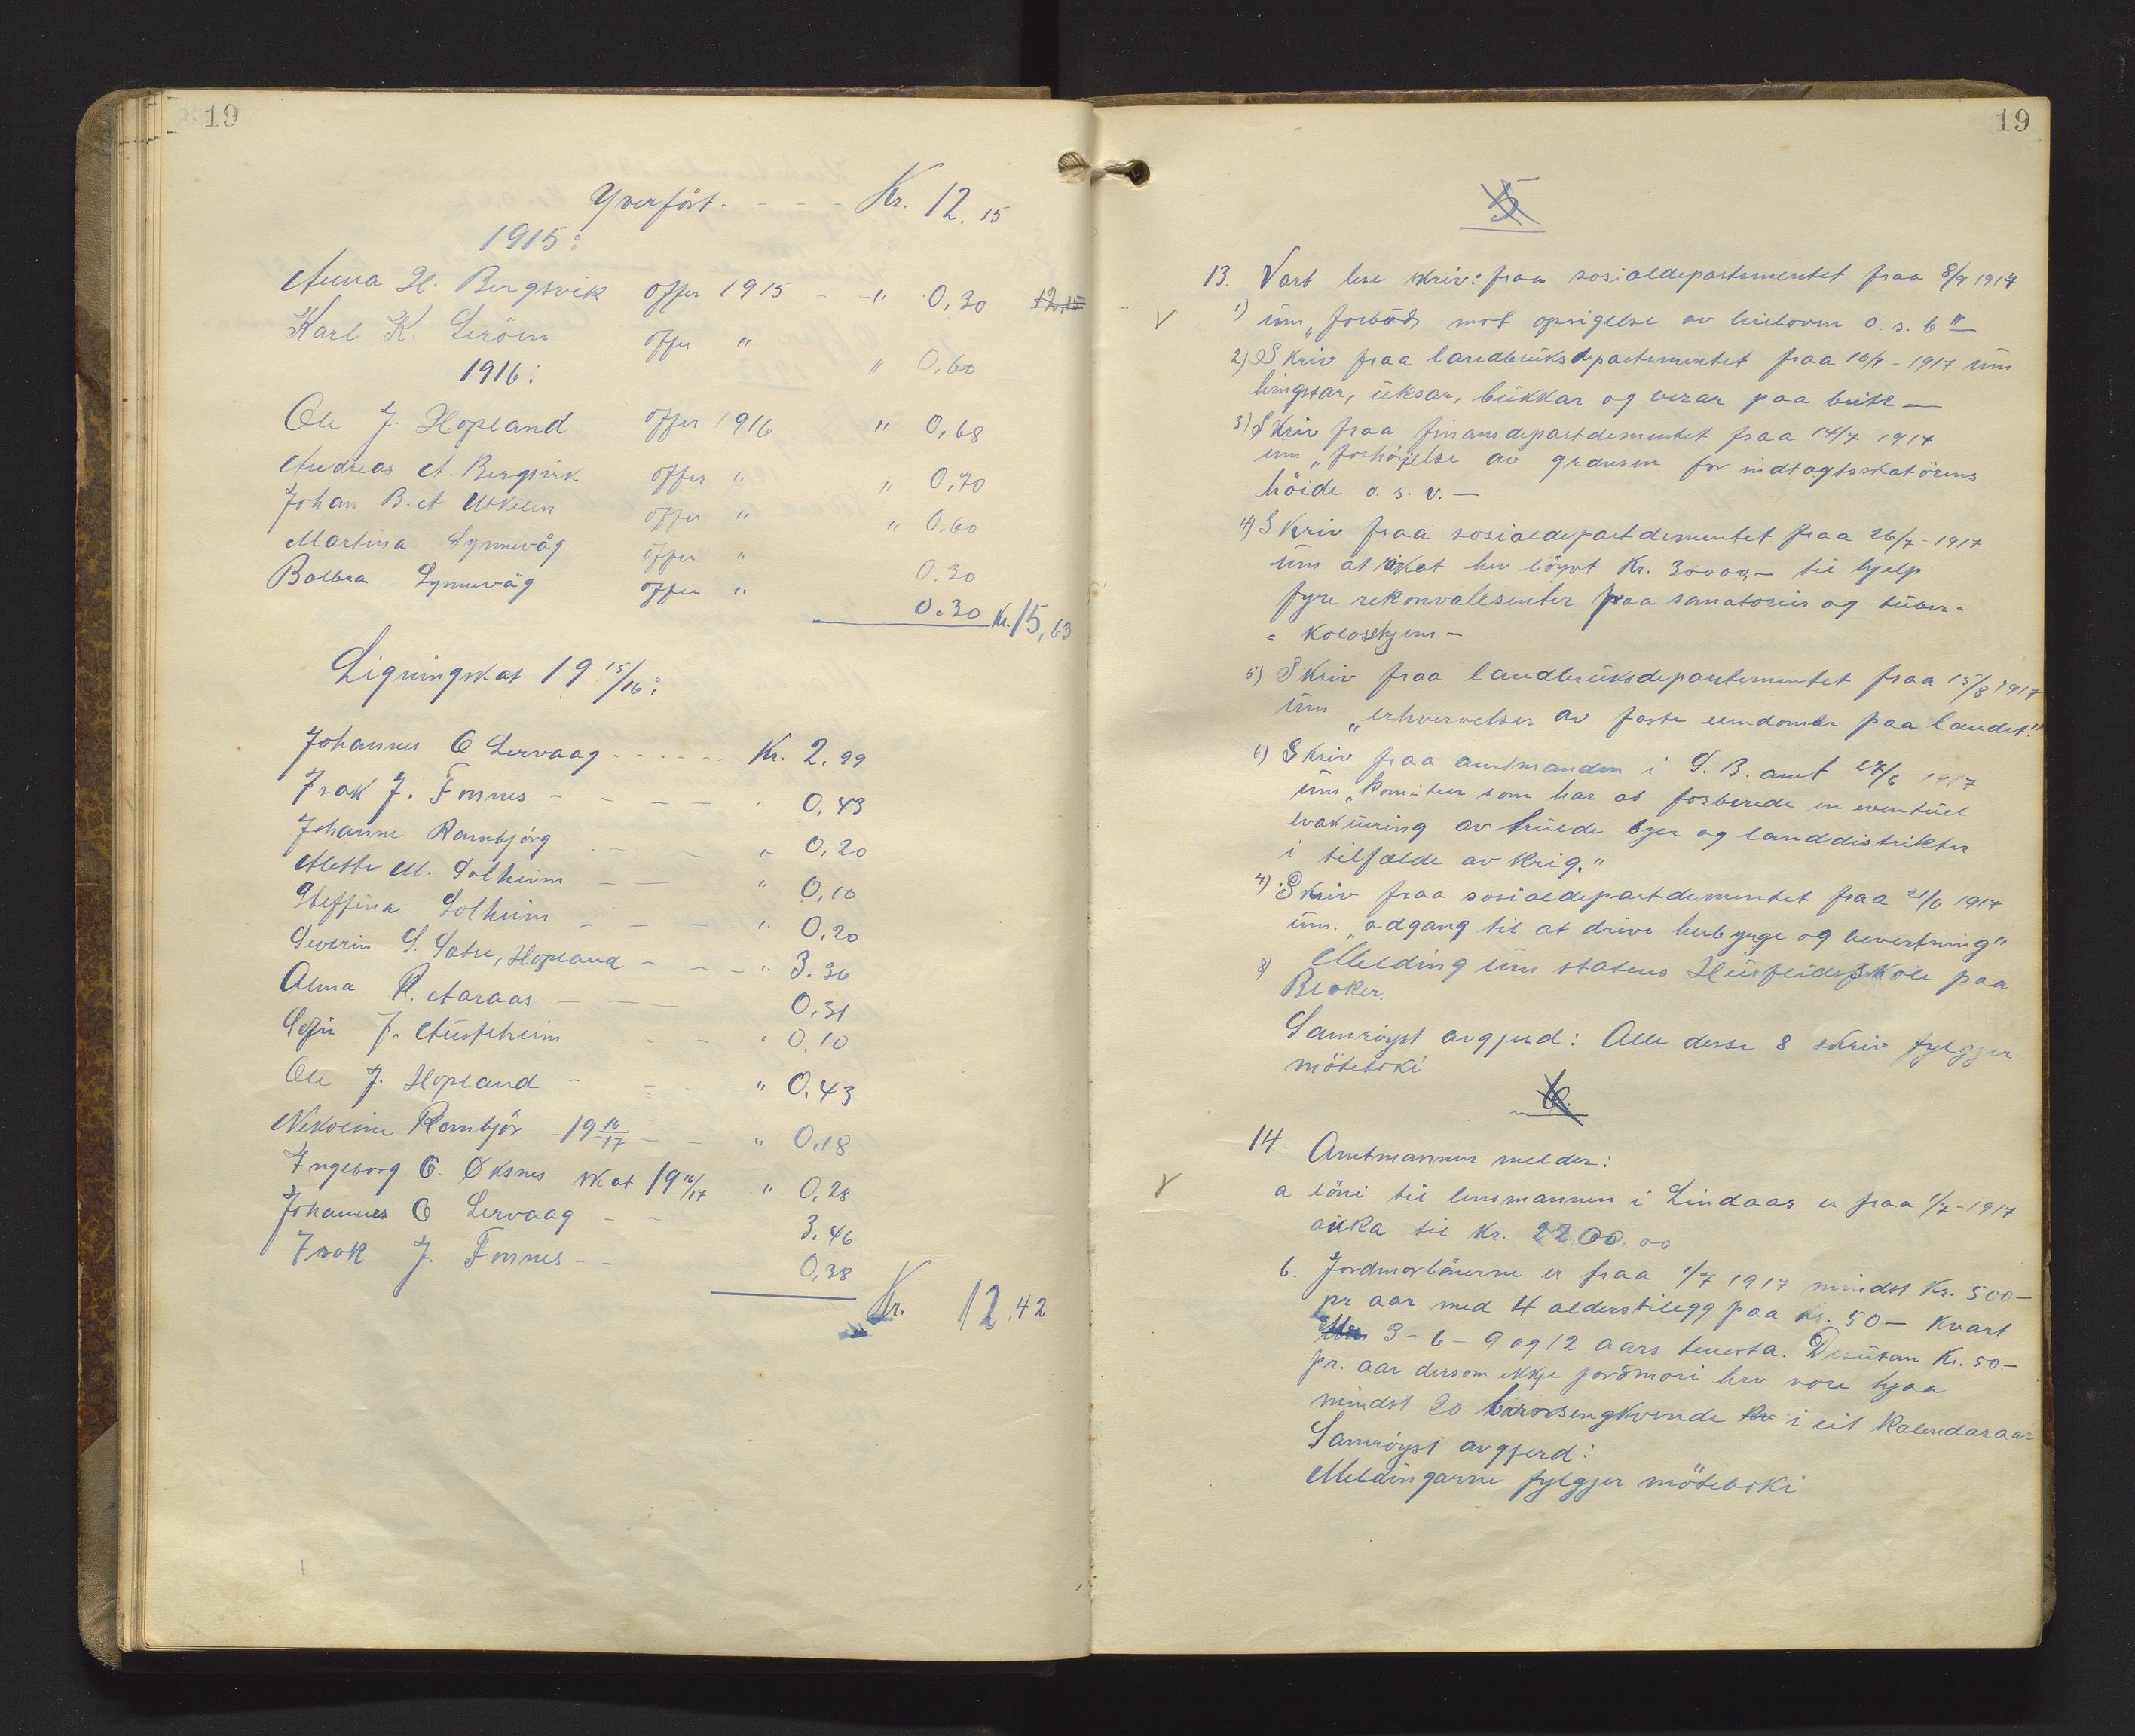 19
Yverført - - - - Kr. 12.15
1915:
Anna H. Bergsvik offer 1915 - " 0,30 12,15
Karl K. Leröen offer " " 0,60
1916:
Ole J. Hopland offer 1916 " 0,68
Andreas A. Bergsvik offer " " 0,70
Johan B. A Utkilen offer " " 0,60
Martina Synnevåg offer " 0.30
Bolbra Synnevåg offer " 0.30 Kr. 15,63
Ligningskat 19 15/16:
Johannes O Lervaag - - - - - - Kr. 2.99
Isak J. Fonnes - - - - - " 0,43
Johanne Rambjörg - - - " 0,20
Mette M. Solheim - - - " 0,10
Steffina Solheim - - - - " 0,20
Severin S. Sætre, Hopland - - - " 3.30
Alma R. Aaraas - - - 0,31
Sofie J. Austrheim - - " 0.10
Ole J. Hopland - - - " 0.43
Nekoline Rambjör - 19 16/17 - - " 0,18
Ingeborg O. Øksnes skat 19 16/17 " 0,28
Johannes O Lervaag - - 3,46
Isak J. Fonnes - - 0,38
Kr. 12,42
19
5
13. Vart lese skriv: fraa sosialdepartementet fraa 8/9 1917
1) um „forbud mot opsigelse av husleien o. s. b" —
2) Skriv fraa landbruksdepartementet fraa 10/7 - 1917 um
hingstar, uksar, bukkar og verar paa beite —
3) Skriv fraa finansdepartdementet fraa 14/7 1917
um „forhöjelse av grænsen for indtægtsskatörens
höide o. s. v. —
4) Skriv fraa sosialdepartdementet fraa 26/7 - 1917
um at riket hev löyvt Kr. 30000,- til hjelp
fyre rekonvalesenter fraa sanatorier og tuber-
= koloshjem -
5) Skriv fraa landbruksdepartementet fraa 15/8 1917
um „erhvervelser av faste eiendomer paa landet."
6) Skriv fraa amtmanden i S. B. amt 27/6 1917
um „komiteen som har at forberede en eventuel
evakuering av truede byer og landdistrikter
i tilfælde av krig."
7) Skriv fraa sosialdepartdementet fraa 21/6 1917
um. „adgang til at drive herberge og bevertning"
8) Melding um statens Husflidsskole paa
Blaker.
Samröyst avgjerd: Alle desse 8 skriv fylgjer
möteboki
6.
14. Amtmannen melder:
a löni til lensmannen i Lindaas er fraa 1/7 - 1917
auka til Kr. 2200.00
b. Jordmorlönerne er fraa 1/7 1917 mindst Kr. 500 —
pr aar med 4 alderstilegg paa Kr. 50 — kvart
3 - 6 - 9 og 12 aars tenesta. Desutan Kr. 50.—
pr. aar dersom ikkje jordmori hev vore hjaa
mindst 20 barnsengkvende i eit kalendaraar
Samröyst avgjerd:
Meldingarne fylgjer möteboki